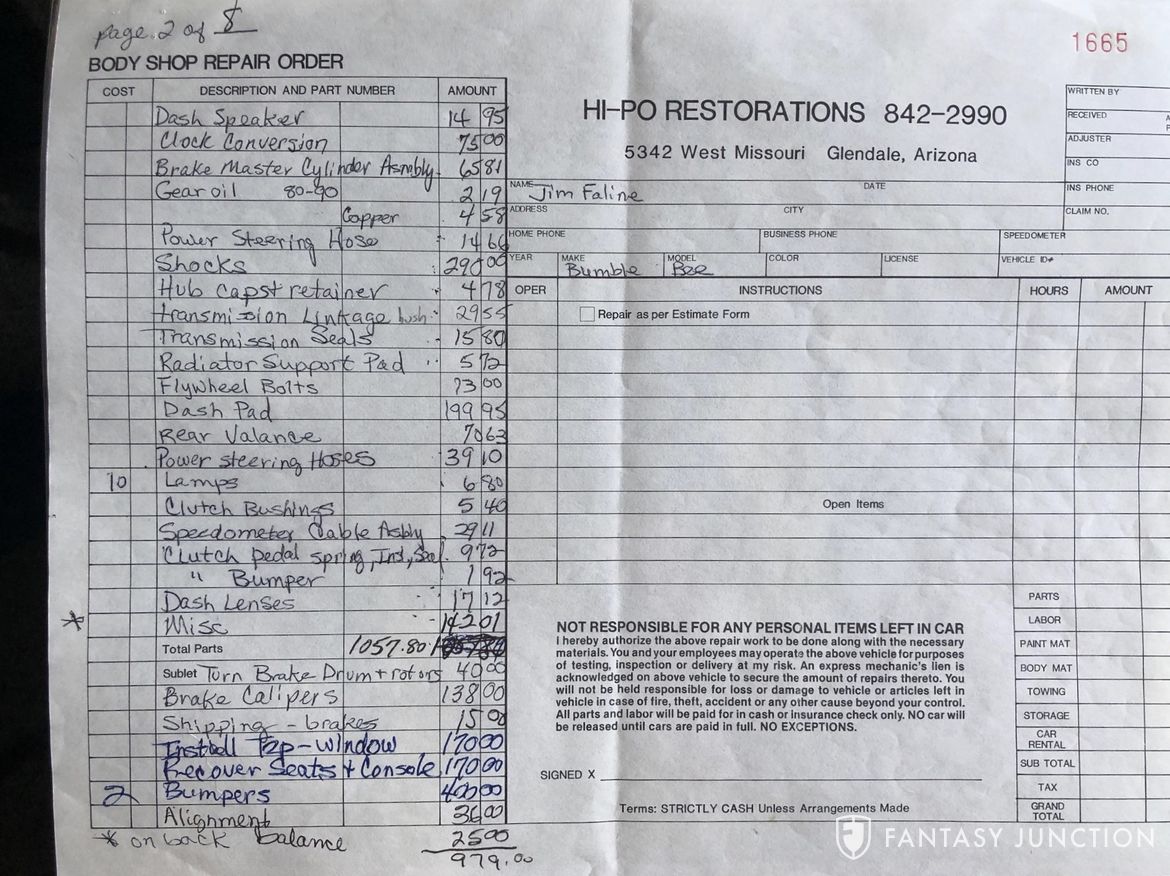 page 2 of 8
1665
BODY SHOP REPAIR ORDER
COST DESCRIPTION AND PART NUMBER AMOUNT
Dash Speaker 14 95
Clock Conversion 75 00
Brake Master Cylinder Asmbly 65 81
Gear oil 80-90 2 19
Copper 4 58
Power Steering Hose 14 66
Shocks 290 00
Hub caps + retainer 4 78
transmission Linkage bush 29 55
Transmission Seals 15 80
Radiator Support Pad 5 72
Flywheel Bolts 13 00
Dash Pad 199 95
Rear Valance 70 63
Power steering Hoses 39 10
10 Lamps 6 80
Clutch Bushings 5 40
Speedometer Cable Asbly 29 11
Clutch pedal spring, Ins, Seal 9 72
" Bumper 1 92
Dash Lenses 17 12
* Misc 142 01
Total Parts 1057.80
Sublet Turn Brake Drum + rotors 40 00
Brake Calipers 138 00
Shipping - brakes 15 00
Install Top - window 170 00
Recover Seats + Console 170 00
2 Bumpers 400 00
Alignment 36 00
* on back balance 25 00
979.00
HI-PO RESTORATIONS 842-2990
5342 West Missouri Glendale, Arizona
WRITTEN BY
RECEIVED
ADJUSTER
INS CO
INS PHONE
CLAIM NO.
NAME Jim Faline DATE
ADDRESS CITY
HOME PHONE BUSINESS PHONE SPEEDOMETER
YEAR MAKE Bumble MODEL Bee COLOR LICENSE VEHICLE ID#
OPER INSTRUCTIONS HOURS AMOUNT
Repair as per Estimate Form
Open Items
NOT RESPONSIBLE FOR ANY PERSONAL ITEMS LEFT IN CAR
I hereby authorize the above repair work to be done along with the necessary
materials. You and your employees may operate the above vehicle for purposes
of testing, inspection or delivery at my risk. An express mechanic's lien is
acknowledged on above vehicle to secure the amount of repairs thereto. You
will not be held responsible for loss or damage to vehicle or articles left in
vehicle in case of fire, theft, accident or any other cause beyond your control.
All parts and labor will be paid for in cash or insurance check only. NO car will
be released until cars are paid in full. NO EXCEPTIONS.
SIGNED X
Terms: STRICTLY CASH Unless Arrangements Made
PARTS
LABOR
PAINT MAT
BODY MAT
TOWING
STORAGE
CAR
RENTAL
SUB TOTAL
TAX
GRAND
TOTAL
FANTASY JUNCTION